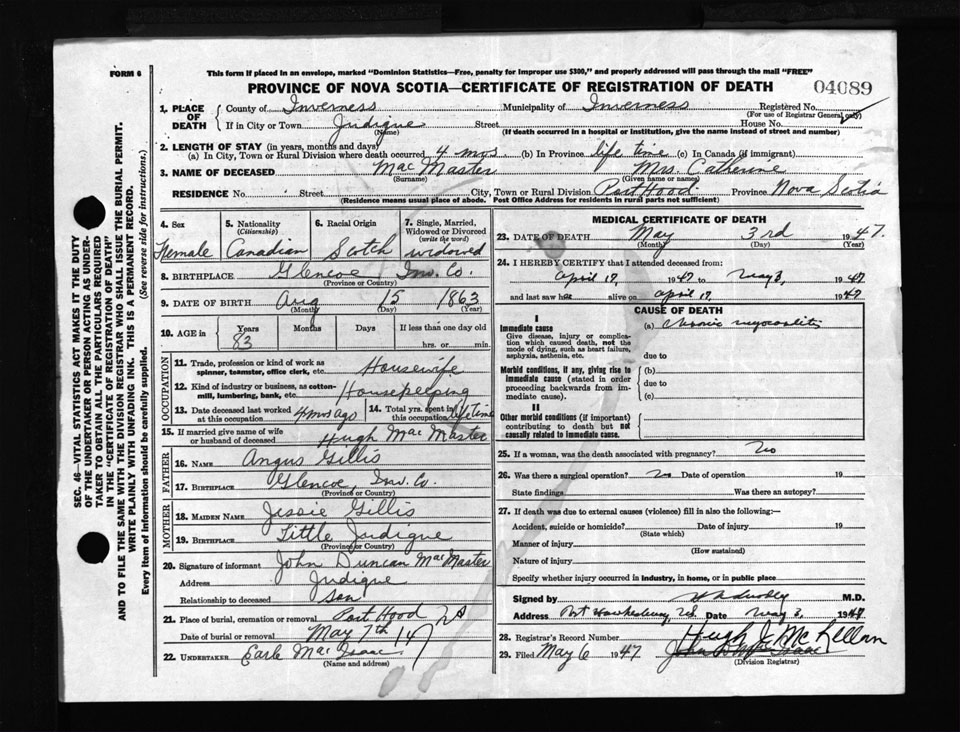 FORM 6
This form if placed in an envelope, marked "Dominion Statistics—Free, penalty for improper use $300," and properly addressed will pass through the mail "FREE"
PROVINCE OF NOVA SCOTIA—CERTIFICATE OF REGISTRATION OF DEATH
04089
1. PLACE OF DEATH County of Inverness Municipality of Inverness Registered No.
(For use of Registrar General only)
If in City or Town Judique Street House No.
(Name) (If death occurred in a hospital or institution, give the name instead of street and number)
2. LENGTH OF STAY (in years, months and days)
(a) In City, Town or Rural Division where death occurred 4 mos (b) In Province life time (c) In Canada (if immigrant)
3. NAME OF DECEASED MacMaster Mrs. Catherine
(Surname) (Given name or names)
RESIDENCE No. Street City, Town or Rural Division Port Hood Province Nova Scotia
(Residence means usual place of abode. Post Office Address for residents in rural parts not sufficient)
SEC. 46—VITAL STATISTICS ACT MAKES IT THE DUTY
OF THE UNDERTAKER OR PERSON ACTING AS UNDER-
TAKER TO OBTAIN ALL THE PARTICULARS REQUIRED
IN THE "CERTIFICATE OF REGISTRATION OF DEATH"
AND TO FILE THE SAME WITH THE DIVISION REGISTRAR WHO SHALL ISSUE THE BURIAL PERMIT.
WRITE PLAINLY WITH UNFADING INK. THIS IS A PERMANENT RECORD.
Every item of information should be carefully supplied. (See reverse side for instructions.)
4. Sex
Female
5. Nationality
(Citizenship)
Canadian
6. Racial Origin
Scotch
7. Single, Married,
Widowed or Divorced
(write the word)
widowed
8. BIRTHPLACE Glencoe Inv. Co.
(Province or Country)
9. DATE OF BIRTH Aug 15 1863
(Month) (Day) (Year)
10. AGE in Years Months Days If less than one day old
83 hrs. or min.
OCCUPATION
11. Trade, profession or kind of work as
spinner, teamster, office clerk, etc. Housewife
12. Kind of industry or business, as cotton-
mill, lumbering, bank, etc. Housekeeping
13. Date deceased last worked
at this occupation 4 mos ago
14. Total yrs. spent in
this occupation life time
15. If married give name of wife
or husband of deceased Hugh MacMaster
FATHER
16. NAME Angus Gillis
17. BIRTHPLACE Glencoe, Inv. Co.
(Province or Country)
MOTHER
18. MAIDEN NAME Jessie Gillis
19. BIRTHPLACE Little Judique
(Province or Country)
20. Signature of informant John Duncan MacMaster
Address Judique
Relationship to deceased Son
21. Place of burial, cremation or removal Port Hood
Date of burial or removal May 7th
22. UNDERTAKER Earle MacIsaac
(Name and address)
MEDICAL CERTIFICATE OF DEATH
23. DATE OF DEATH May 3rd 1947.
(Month) (Day) (Year)
24. I HEREBY CERTIFY that I attended deceased from:
April 17, 1947 to May 3, 1947
and last saw her alive on April 17, 1947
CAUSE OF DEATH
I
Immediate cause
Give disease, injury or complica-
tion which caused death, not the
mode of dying, such as heart failure,
asphyxia, asthenia, etc.
(a) Chronic myocarditis
due to
Morbid conditions, if any, giving rise to
immediate cause (stated in order
proceeding backwards from im-
mediate cause).
(b)
due to
(c)
II
Other morbid conditions (if important)
contributing to death but not
causally related to immediate cause.
25. If a woman, was the death associated with pregnancy? No
26. Was there a surgical operation? No Date of operation 19
State findings Was there an autopsy?
27. If death was due to external causes (violence) fill in also the following:—
Accident, suicide or homicide? Date of injury 19
(State which)
Manner of injury
(How sustained)
Nature of injury
Specify whether injury occurred in industry, in home, or in public place
Signed by M.D.
Address Port Hawkesbury, Date May 3, 1947
28. Registrar's Record Number Hugh J. McLellan
29. Filed May 6 1947 John MacIsaac
(Division Registrar)